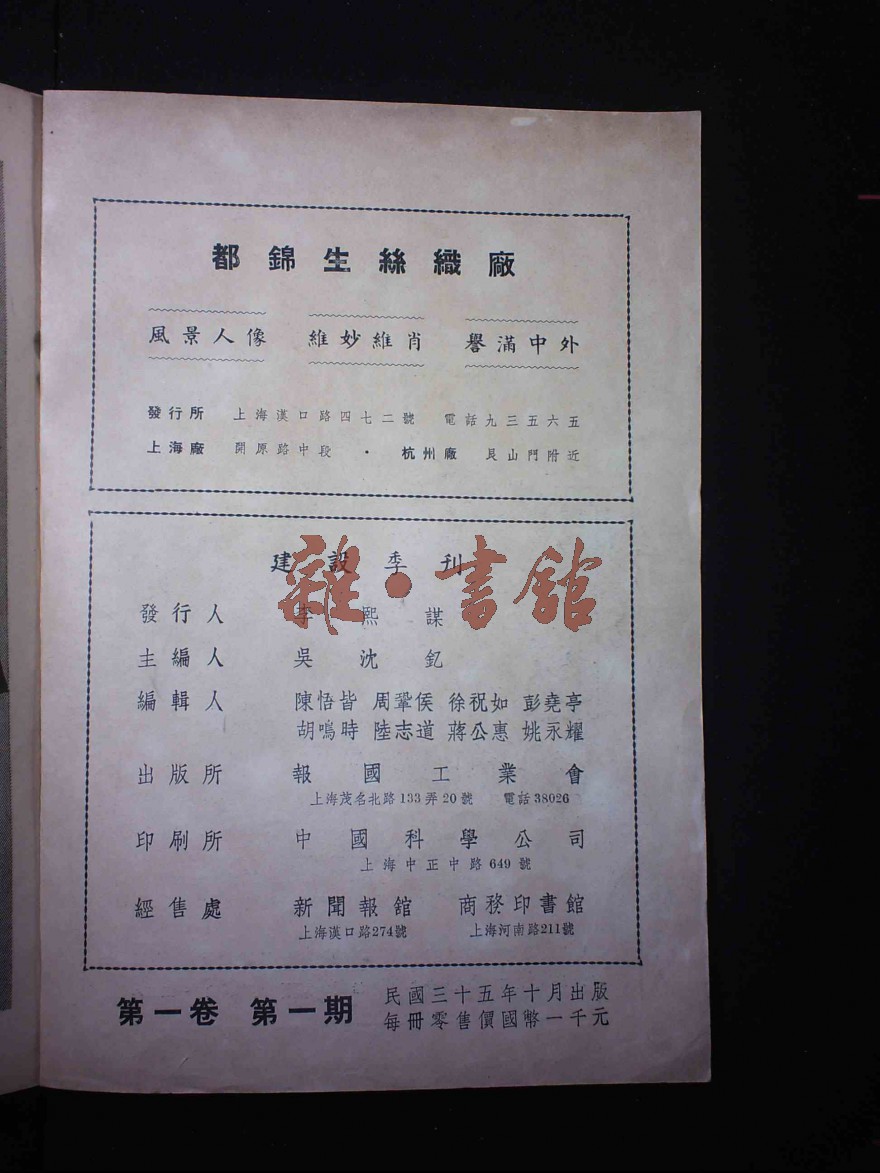 都錦生絲織廠
風景人像 維妙維肖 譽滿中外
發行所 上海漢口路四七二號 電話九三五六五
上海廠 開原路中段 · 杭州廠 艮山門附近
建設季刊
雜·書館
發行人 李熙謀
主編人 吳沈釔
編輯人 陳悟皆 周鞏侯 徐祝如 彭堯亭
胡鳴時 陸志道 蔣公惠 姚永耀
出版所 報國工業會
上海茂名北路133弄20號 電話38026
印刷所 中國科學公司
上海中正中路649號
經售處 新聞報館 商務印書館
上海漢口路274號 上海河南路211號
第一卷 第一期
民國三十五年十月出版
每冊零售價國幣一千元